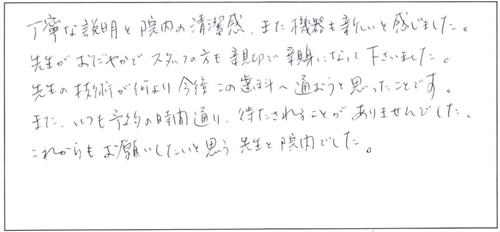 丁寧な説明と院内の清潔感、また機器も新しいと感じました。
先生がおだやかで スタッフの方も親切で親身になって下さいました。
先生の技術が何より今後この歯科へ通おうと思ったことです。
また、いつも予約の時間通り、待たされることがありませんでした。
これからもお願いしたいと思う先生と院内でした。